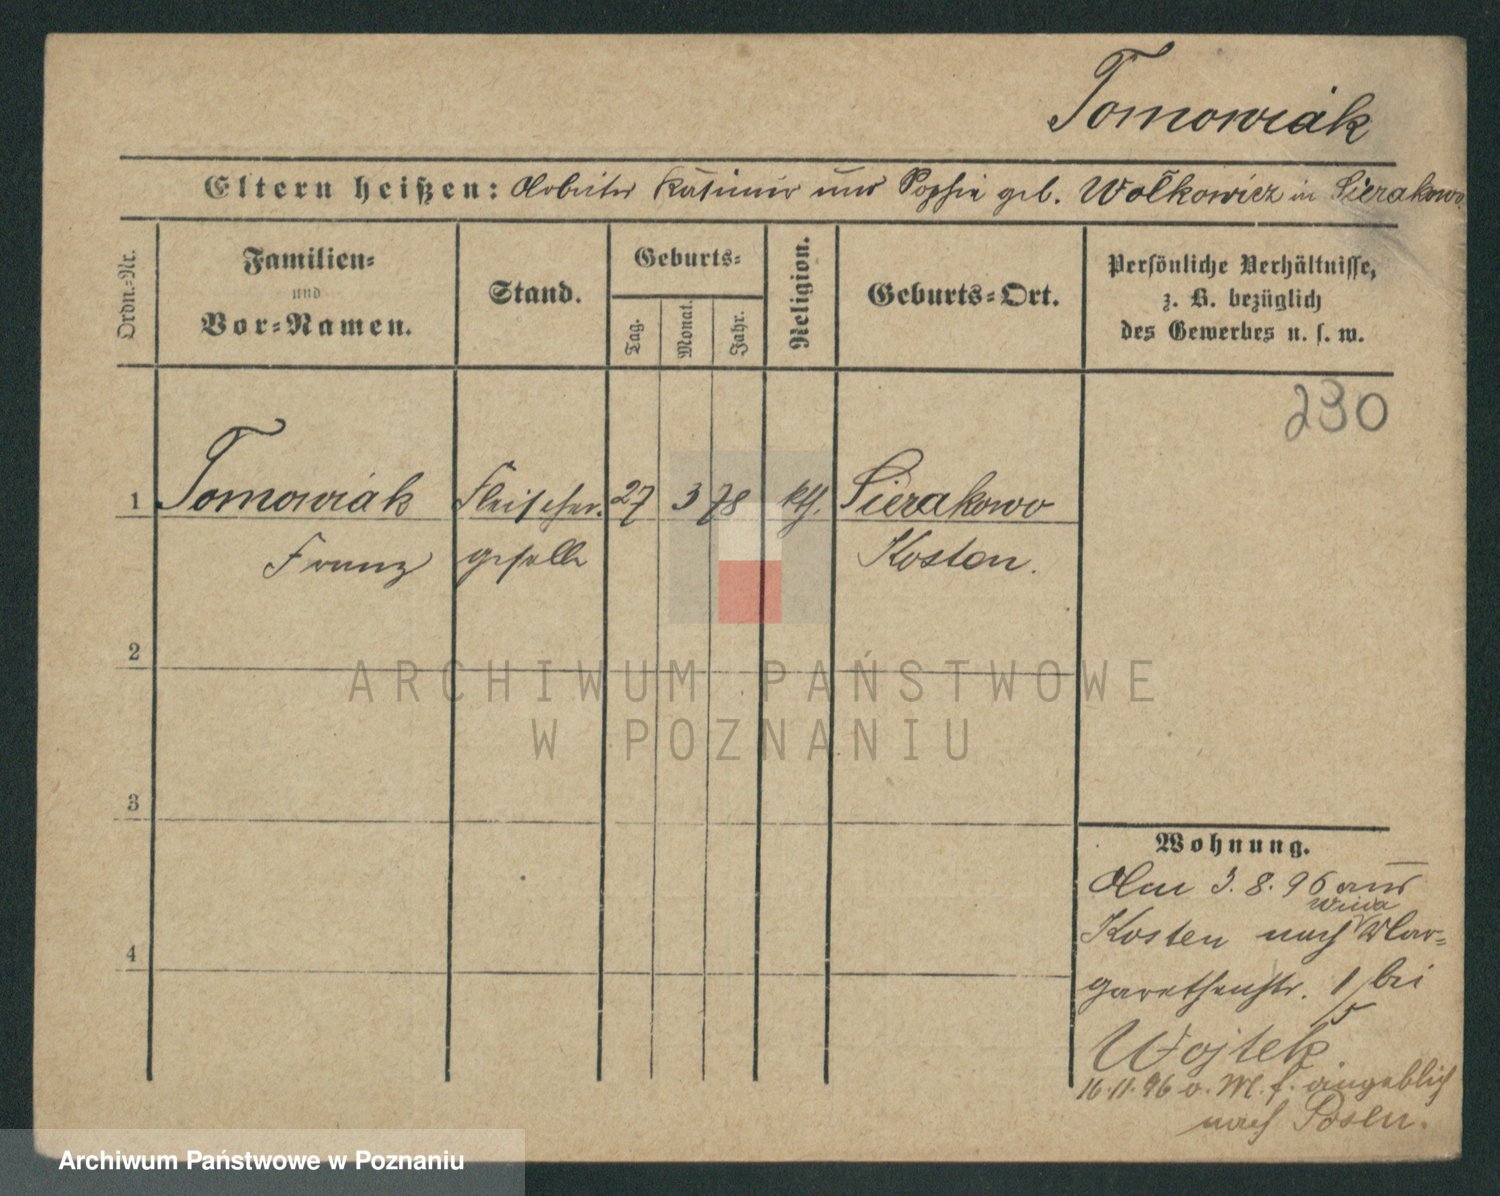 Tomowiak
Eltern heißen: Arbeiter Kasimir und Sophie geb. Wołkowicz in Sierakowo
Ordn.-Nr.
Familien-
und
Vor-Namen.
Stand.
Geburts-
Tag.
Monat.
Jahr.
Religion.
Geburts-Ort.
Persönliche Verhältnisse,
z. B. bezüglich
des Gewerbes u. s. w.
230
1 Tomowiak Fleischer- 27 3 78 kth. Sierakowo
Franz geselle Kosten.
2
3
4
Wohnung.
Am 3. 8. 96 aus
Wilda
Kosten nach Mar-
garethenstr. 1 bei
5
Wojtek.
16.11.96 o. M. f. angeblich
nach Posen.
ARCHIWUM PAŃSTWOWE
W POZNANIU
Archiwum Państwowe w Poznaniu